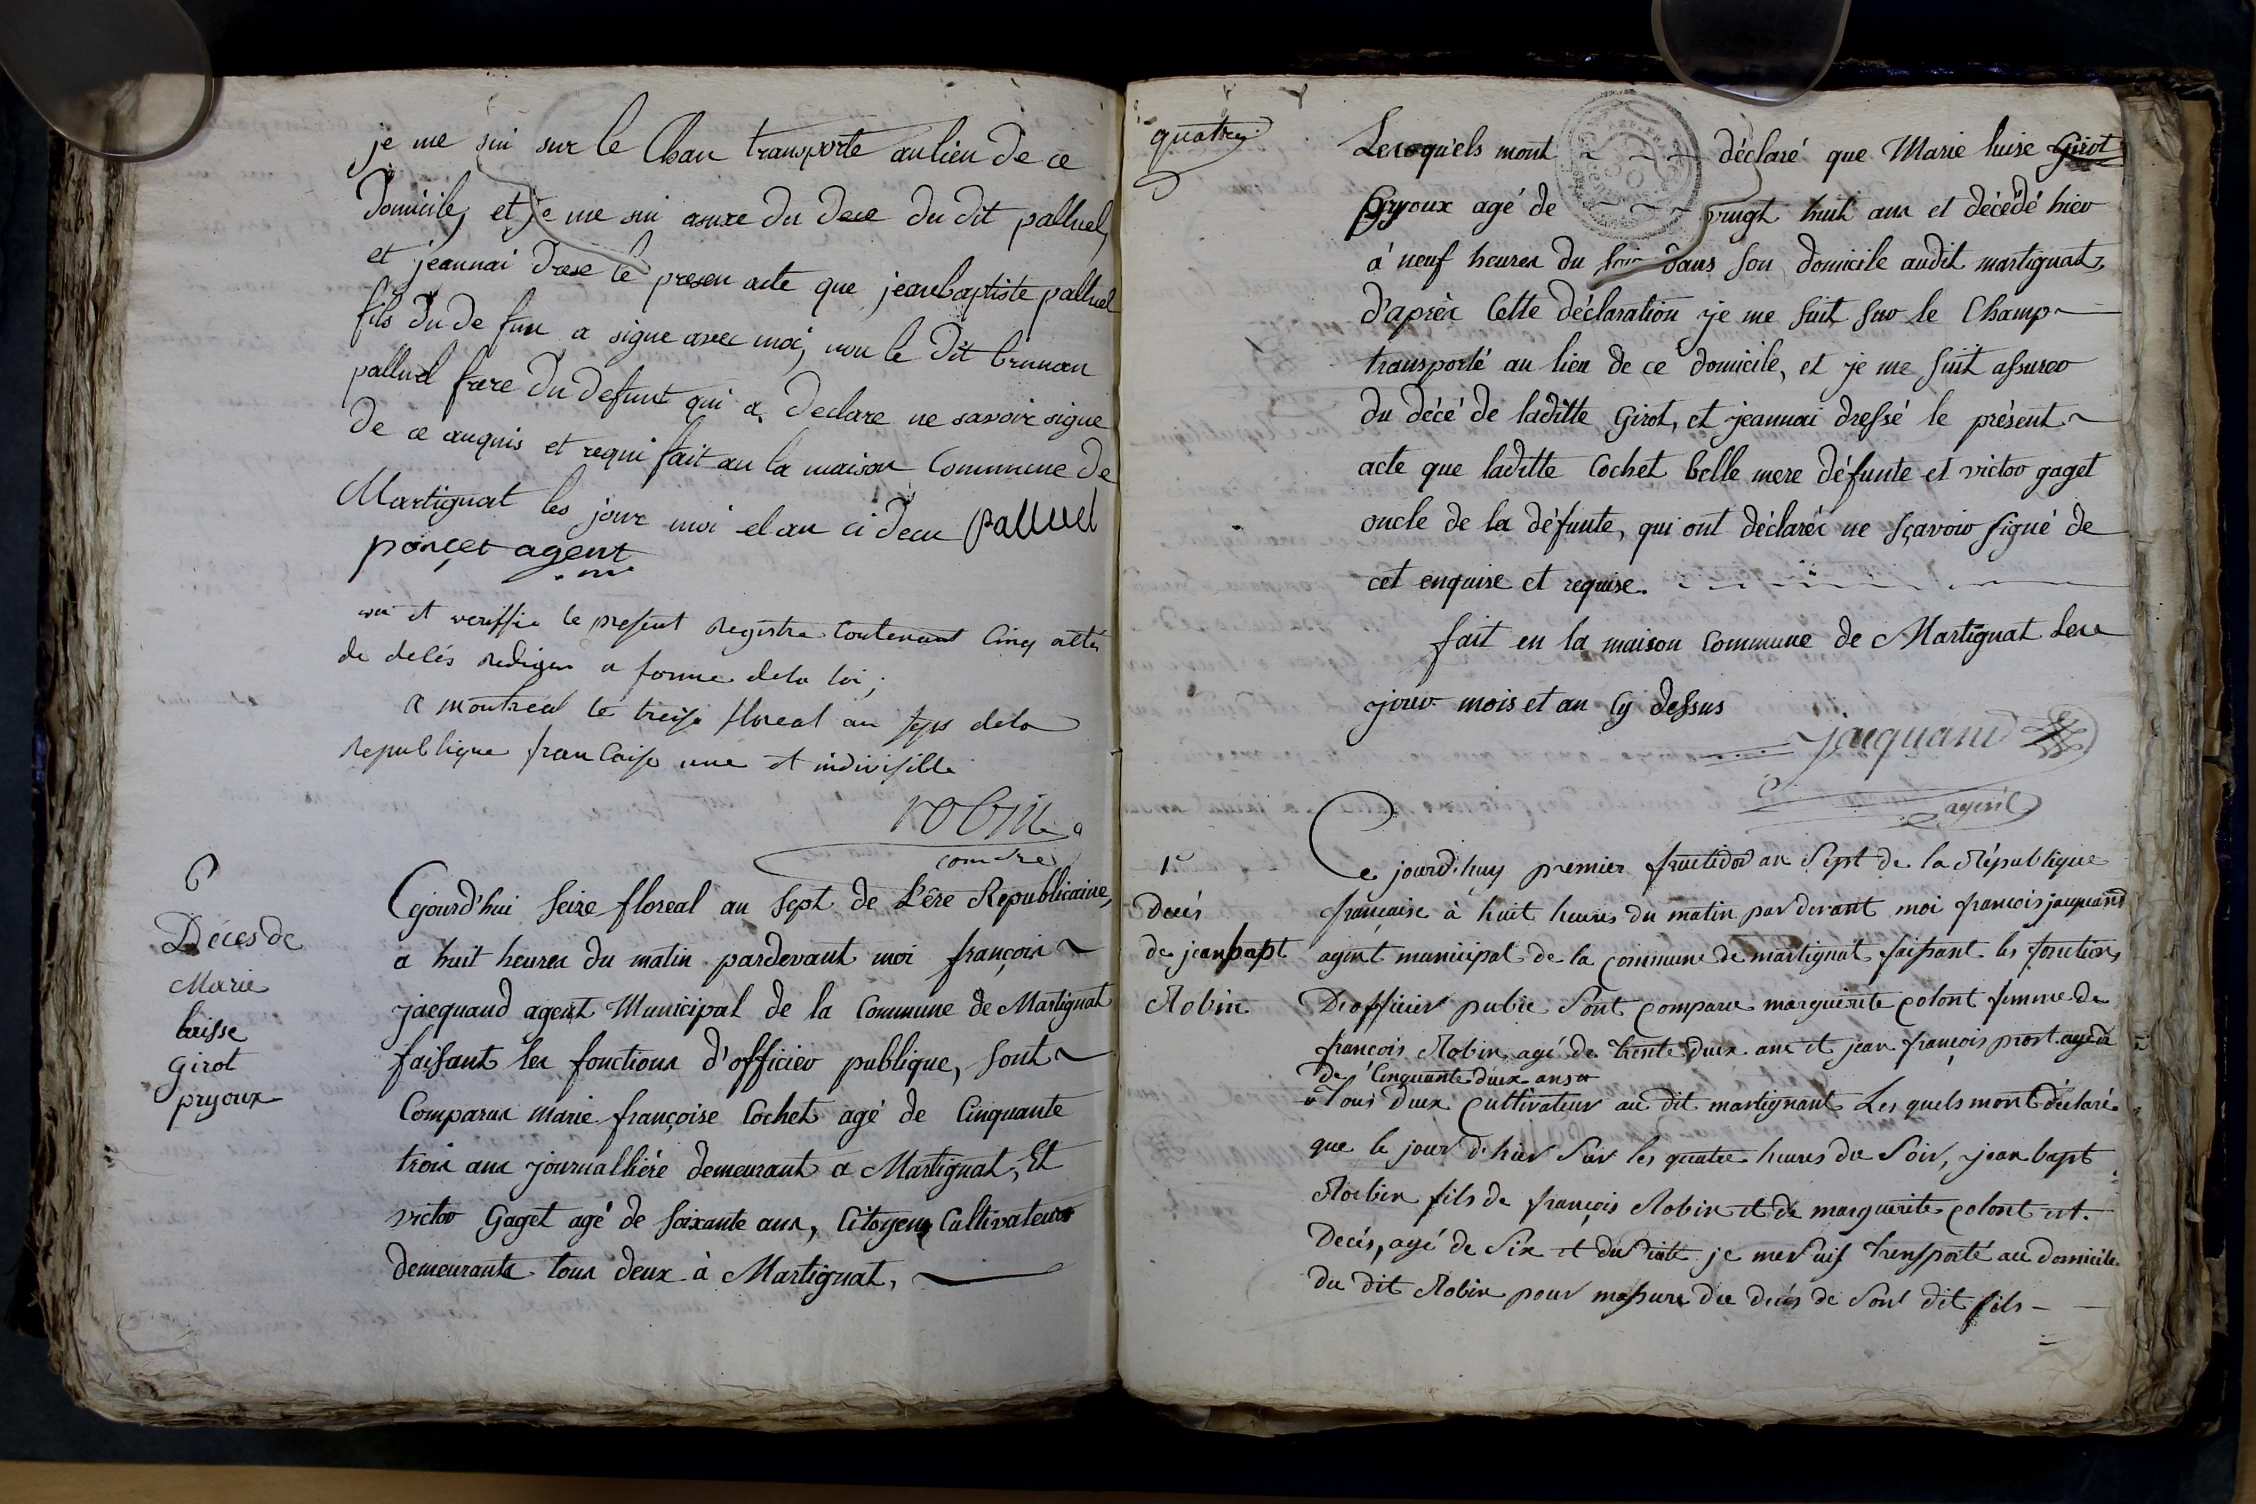 je me sui sur le Chan transporte aulieu de ce
domicile, et je me sui asuxe du dece du dit palluel,
et jeannai drese le presen acte que jeanbaptiste palluel
fils du de fun a signe avec moi, non le dit brunau
palluel frere du defunt qui a declare ne savoir signe
de ce anquis et requi fait au la maison Commune de
Martignat les jour moi el an ci deçu palluel
ponçet agent
vu et veriffie le present registre Contenant Cinq actes
de delés rediger a forme dela loi,
a montreal le treise floreal an sept dela
republique francaise une et indivisible
robin
comre
6
Déces de
Marie
luisse
Girot
pryoux
Cejourd'hui seize floreal au sept de L'ère Republicaine,
a huit heures du matin pardevant moi françois
jacquand agent Municipal de la Commune de Martignat
faisant les fonctions d'officier publique, sont
Comparus marie françoise Cochet agé de Cinquante
trois ans journallière demeurant a Martignat, Et
victor Gaget agé de soixante ans, Citoyens Cultivateurs
demeurants tous deux à Martignat,
quatre
Lesesquels mont déclaré que Marie luise Girot
pryoux agé de vingt huit ans et décédé hier
à neuf heures du soir dans son domicile audit martignat,
d'après Cette déclaration je me suit sur le Champ
transporté au lieu de ce domicile, et je me suit assurer
du décé de laditte Girot, et jeannai dressé le présent
acte que laditte Cochet belle mere défunte et victor gaget
oncle de la défunte, qui ont déclarés ne sçavoir signé de
cet enquise et requise.
fait en la maison Commune de Martignat Les
jour mois et an cy dessus
jacquand
agent
1er
Decés
de jean bapt
Robin
Ce jourd'huy premier fructidor an Sept de la République
française à huit heures du matin par devant moi françois jacquand
agent municipal de la commune de martignat faisant les fonctions
D'officier public Sont Comparu marguerite Colont femme de
françois Robin agé de trente deux ans et jean françois prost agé de
de Cinquante deux ans
Tous deux Cultivateur au dit martignant Les quels mont déclaré
que le jour d'hier Sur les quatre heures du Soir, jean bapt
Robin fils de françois Robin et de marguerite Colont est
Decés, agé de Six je me suis transporté au domicile
du dit Robin pour massure du decés de Sont dit fils